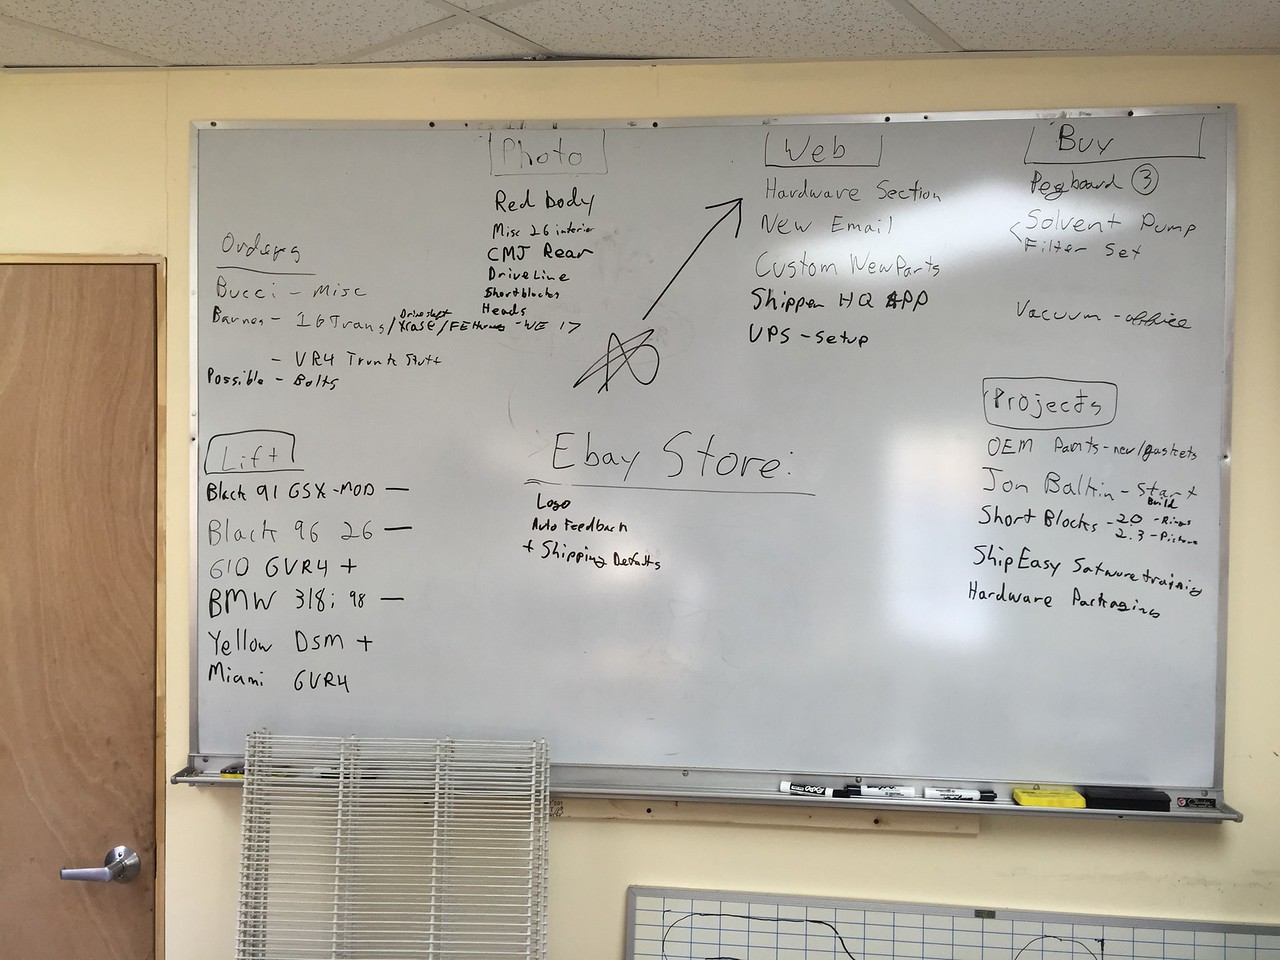 Photo
Red body
Misc 26 interior
CMJ Rear
DriveLine
Shortblocks
Heads
Web
Hardware Section
New Email
Custom New Parts
Shipper HQ APP
UPS - Setup
Buy
Pegboard 3
Solvent Pump
Filter Set
Vacuum - office
Orders
Bucci - Misc
Barnes - 16 Trans / Driveshaft Xcase / FE - WE 17
- VR4 Trunk Stuff
Possible - Bolts
Lift
Black 91 GSX - MOD —
Black 96 26 —
610 GVR4 +
BMW 318i 98 —
Yellow DSM +
Miami GVR4
Ebay Store:
Logo
Auto Feedback
+ Shipping Defalts
Projects
OEM Parts - new/gaskets
Jon Balkin - Start Build
Short Blocks - 2.0 - Rings
2.3 - Pistons
ShipEasy Satwure training
Hardware Packaging